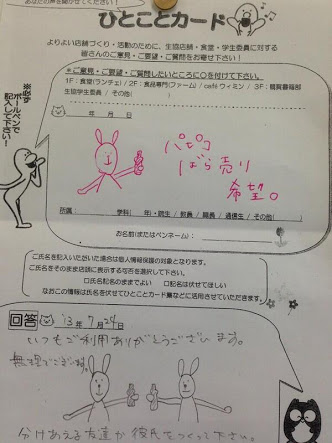 あなたの声を聞かせてください！
ひとことカード
よりよい店舗づくり・活動のために、生協店舗・食堂・学生委員に対する
皆さんのご意見・ご要望・ご質問をお寄せ下さい！
※必ずボールペンで記入して下さい！
※ご意見・ご要望・ご質問したいところに○を付けて下さい。
1F：食堂(ランチェ) / 2F：食品専門(ファーム) / café ヴィミン / 3F：購買書籍部
生協学生委員 / その他( )
年 月 日
パピコ
ばら売り
希望。
所属： 学科( 年)・院生 / 教員 / 職員 / 通信生 / その他( )
お名前(またはペンネーム)：
ご氏名を記入いただいた場合は個人情報保護の対象となります。
ご氏名をそのまま店頭に表示する可否を選択して下さい。
□氏名記名のままでよい □記名は伏せてほしい
なおこの情報は氏名を伏せてひとことカード集などに活用させていただきます。
回答 '13年7月24日
いつもご利用ありがとうございます。
無理でございます。
分けあえる友達か彼氏をつくって下さい。